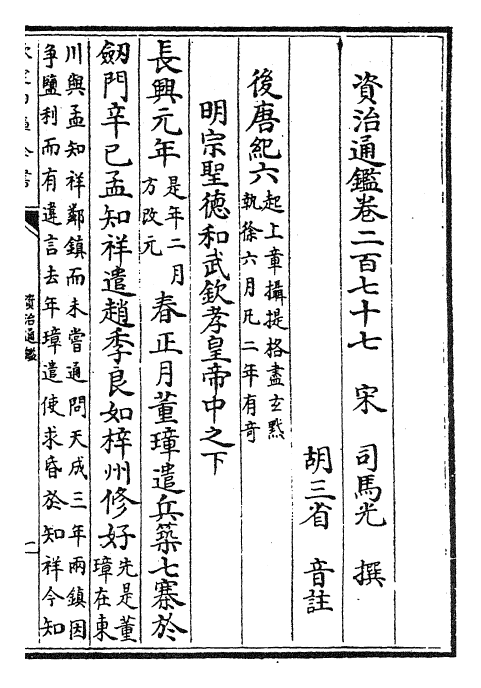 資治通鑑卷二百七十七　宋　司馬光　撰
胡三省　音註
後唐紀六
起上章攝提格盡玄黓
執徐六月凡二年有奇
明宗聖德和武欽孝皇帝中之下
長興元年
是年二月
方改元
春正月董璋遣兵築七寨於
劒門辛巳孟知祥遣趙季良如梓州修好
先是董
璋在東
川與孟知祥鄰鎮而未嘗通問天成三年兩鎮因
爭鹽利而有違言去年璋遣使求昏於知祥今知
資治通鑑